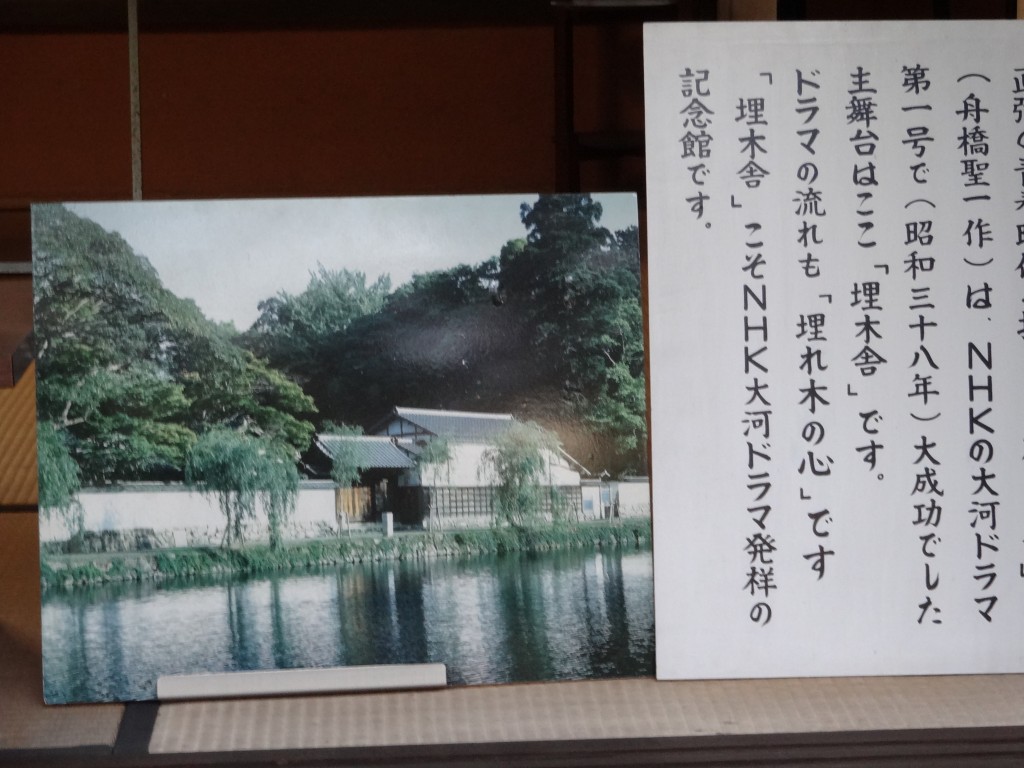 （舟橋聖一作）は、NHKの大河ドラマ
第一号で（昭和三十八年）大成功でした
主舞台はここ「埋木舎」です。
ドラマの流れも「埋れ木の心」です
「埋木舎」こそNHK大河ドラマ発祥の
記念館です。